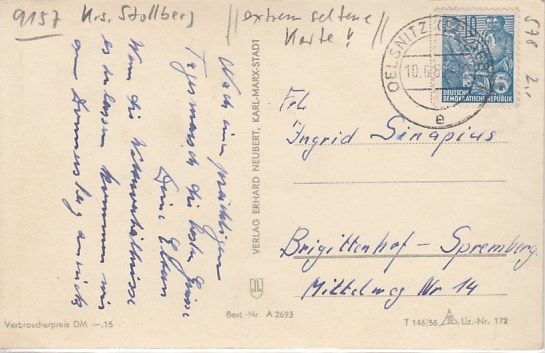 9157 Krs. Stollberg
extrem seltene
Karte!
578
2,-
Nach einem prächtigen
Tagesmarsch die besten Grüsse
Deine Eltern
Wenn die Witterverhältnisse
es zulassen kommen wir
am Donnerstag zurück
VERLAG ERHARD NEUBERT, KARL-MARX-STADT
OELSNITZ (ERZGEB)
10.6.
e
DEUTSCHE
DEMOKRATISCHE REPUBLIK
Frl.
Ingrid Sinapius
Brigittenhof - Spremberg
Mittelweg Nr 14
Verbraucherpreis DM —.15
Best.-Nr. A 2693
T 146/56 Liz.-Nr. 172